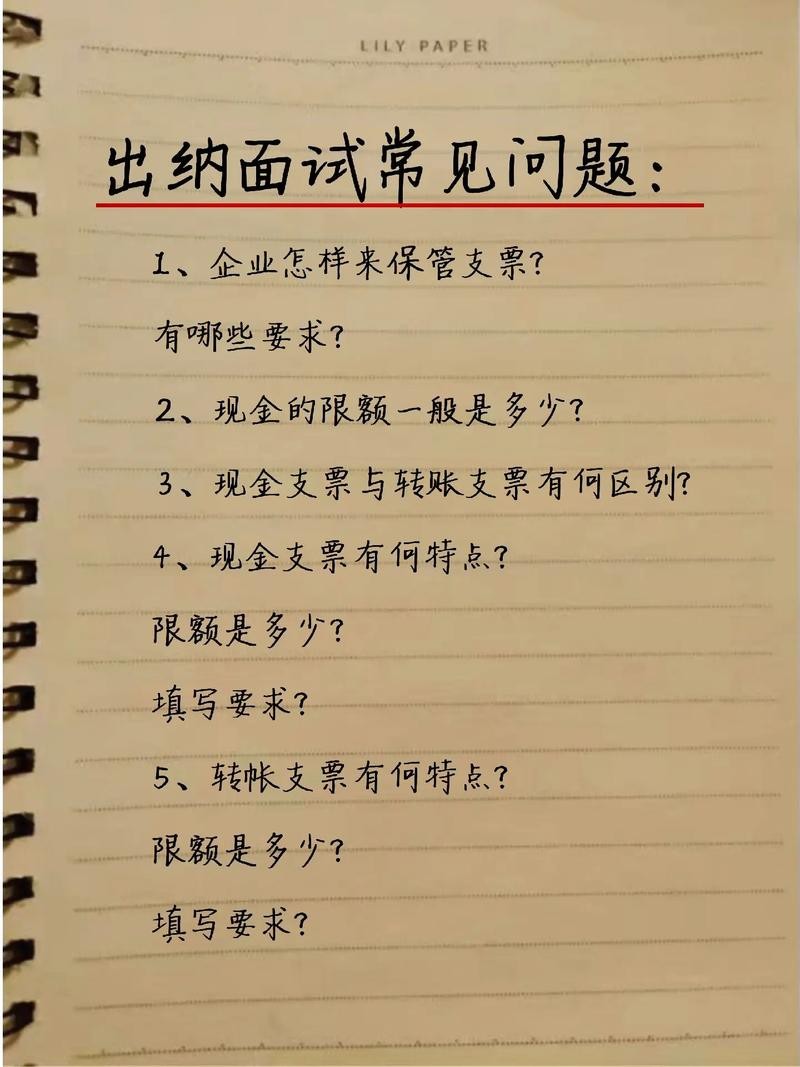 LILY PAPER
出纳面试常见问题：
1、企业怎样来保管支票？
有哪些要求？
2、现金的限额一般是多少？
3、现金支票与转账支票有何区别？
4、现金支票有何特点？
限额是多少？
填写要求？
5、转帐支票有何特点？
限额是多少？
填写要求？